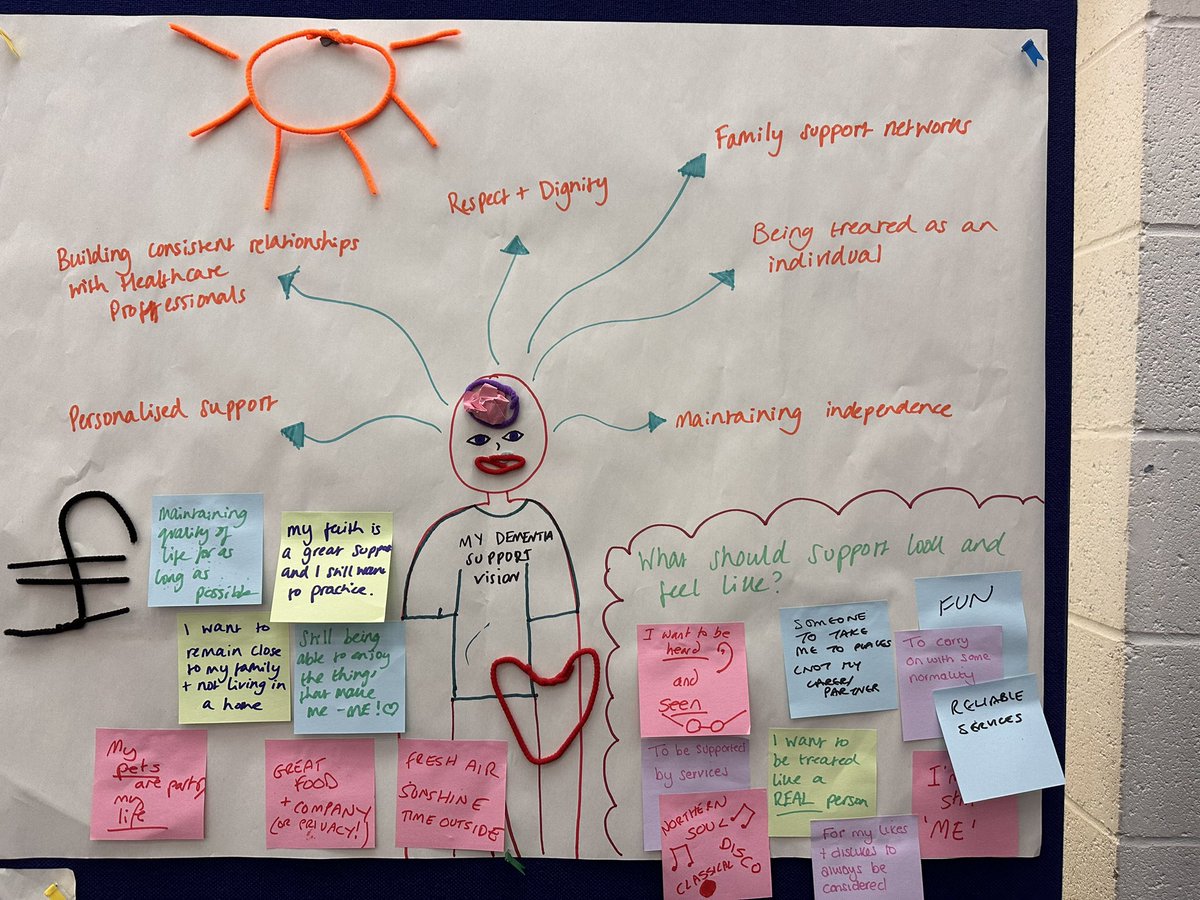 Family support networks
Respect + Dignity
Being treated as an
individual
Building consistent relationships
with Healthcare
Proffessionals
Personalised support
Maintaining independence
MY DEMENTIA
SUPPORT
VISION
Maintaining
quality of
life for as
long as
possible
my faith is
a great support
and I still want
to practice.
I want to
remain close
to my family
+ not living in
a home
Still being
able to enjoy
the things
that make
me - ME!
My
pets
are part of
my
life
GREAT
FOOD
+ COMPANY
(OR PRIVACY!)
FRESH AIR
SUNSHINE
TIME OUTSIDE
What should support look and
feel like?
I want to be
heard
and
seen
SOMEONE
TO TAKE
ME TO PLACES
(NOT MY
CARER/
PARTNER
FUN
To carry
on with some
normality
RELIABLE
SERVICES
To be supported
by services
I want to
be treated
like a
REAL person
I'm
'ME'
NORTHERN
SOUL
DISCO
CLASSICAL
For my likes
+ dislikes to
always be
considered